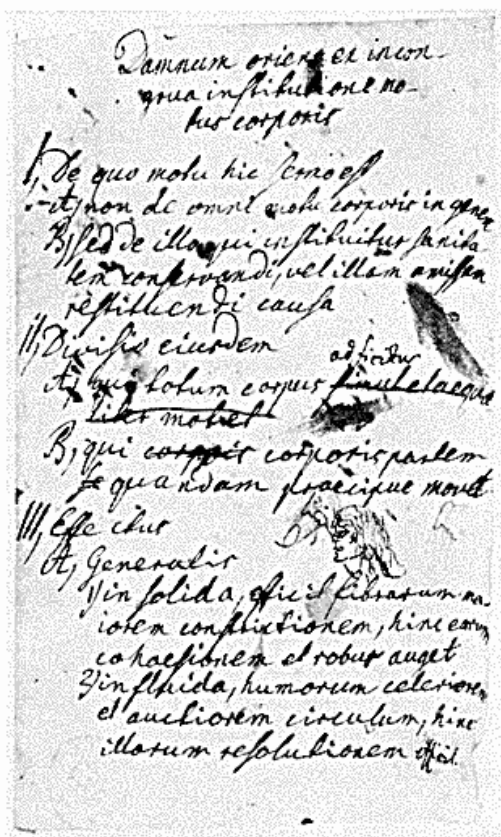 Damnum oriens ex incon-
grua institutione mo-
tus corporis
I, De quo motu hic sermo est
A, non de omni motu corporis in genere
B, sed de illo qui instituitur sanita
tem conservandi, vel illam amissam
restituendi causa
II, Divisio eiusdem
A, qui totum corpus simul et aequa
liter movet
B, qui corporis corporis partem
quandam praecipue movet
III, Effectus
A, Generalis
1) in solida, efficit fibrarum ma-
iorem constrictionem, hinc earum
cohaesionem et robur auget
2) in fluida, humorum celeriorem
et auctiorem circulum, hinc
illorum resolutionem efficit